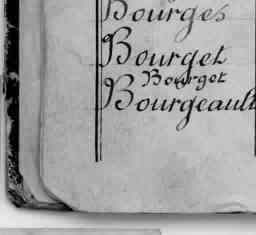 Bourges
Bourget
Bourgot
Bourgeault